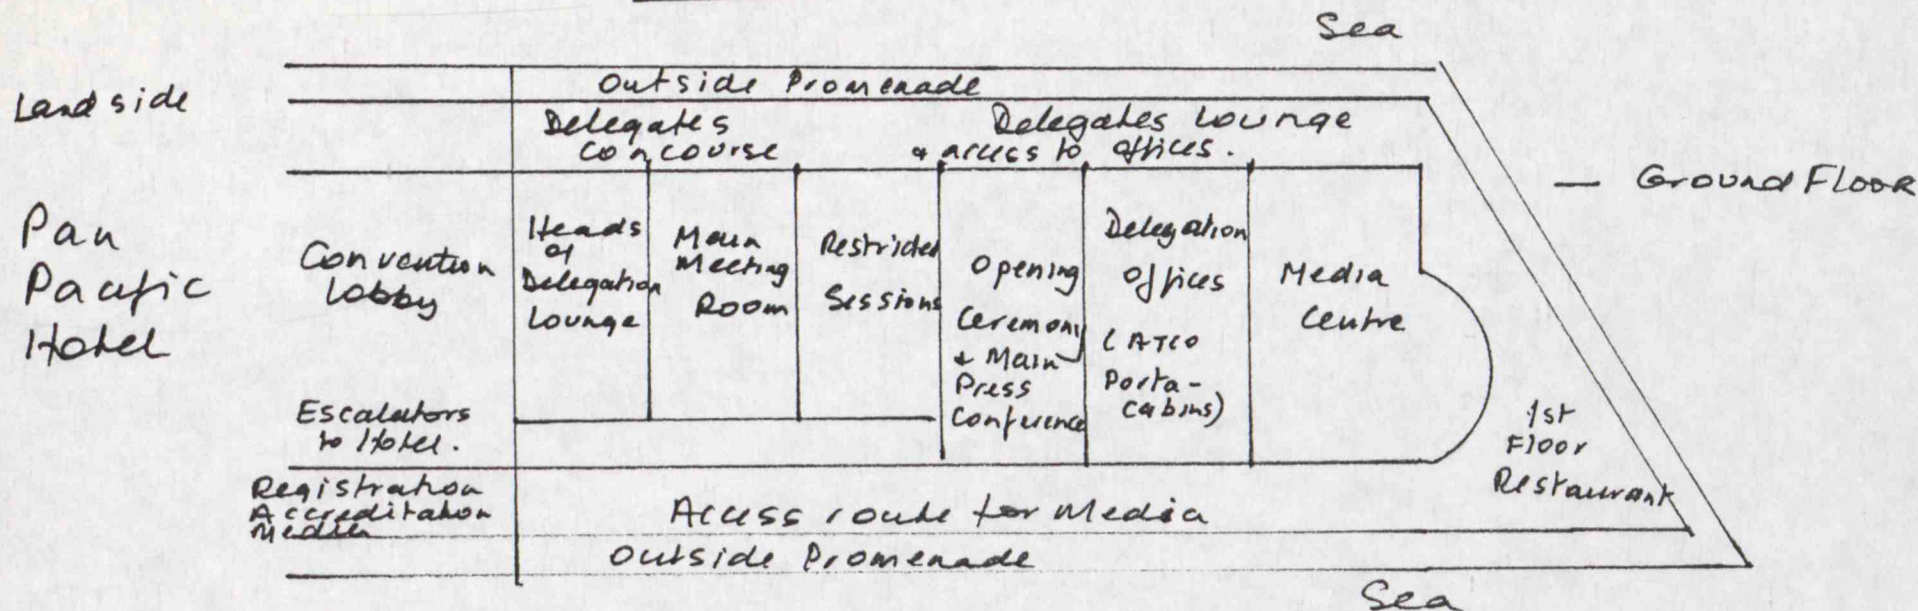 Sea
Outside Promenade
Landside
Delegates
concourse
Delegates Lounge
& access to offices.
— Ground Floor
Pan
Pacific
Hotel
Convention
Lobby
Escalators
to Hotel.
Heads
of
Delegation
Lounge
Main
Meeting
Room
Restricted
Sessions
Opening
Ceremony
& Main
Press
Conference
Delegation
Offices
(ATCO
Porta-
cabins)
Media
Centre
1st
Floor
Restaurant
Registration
Accreditation
Media
Access route for Media
Outside Promenade
Sea